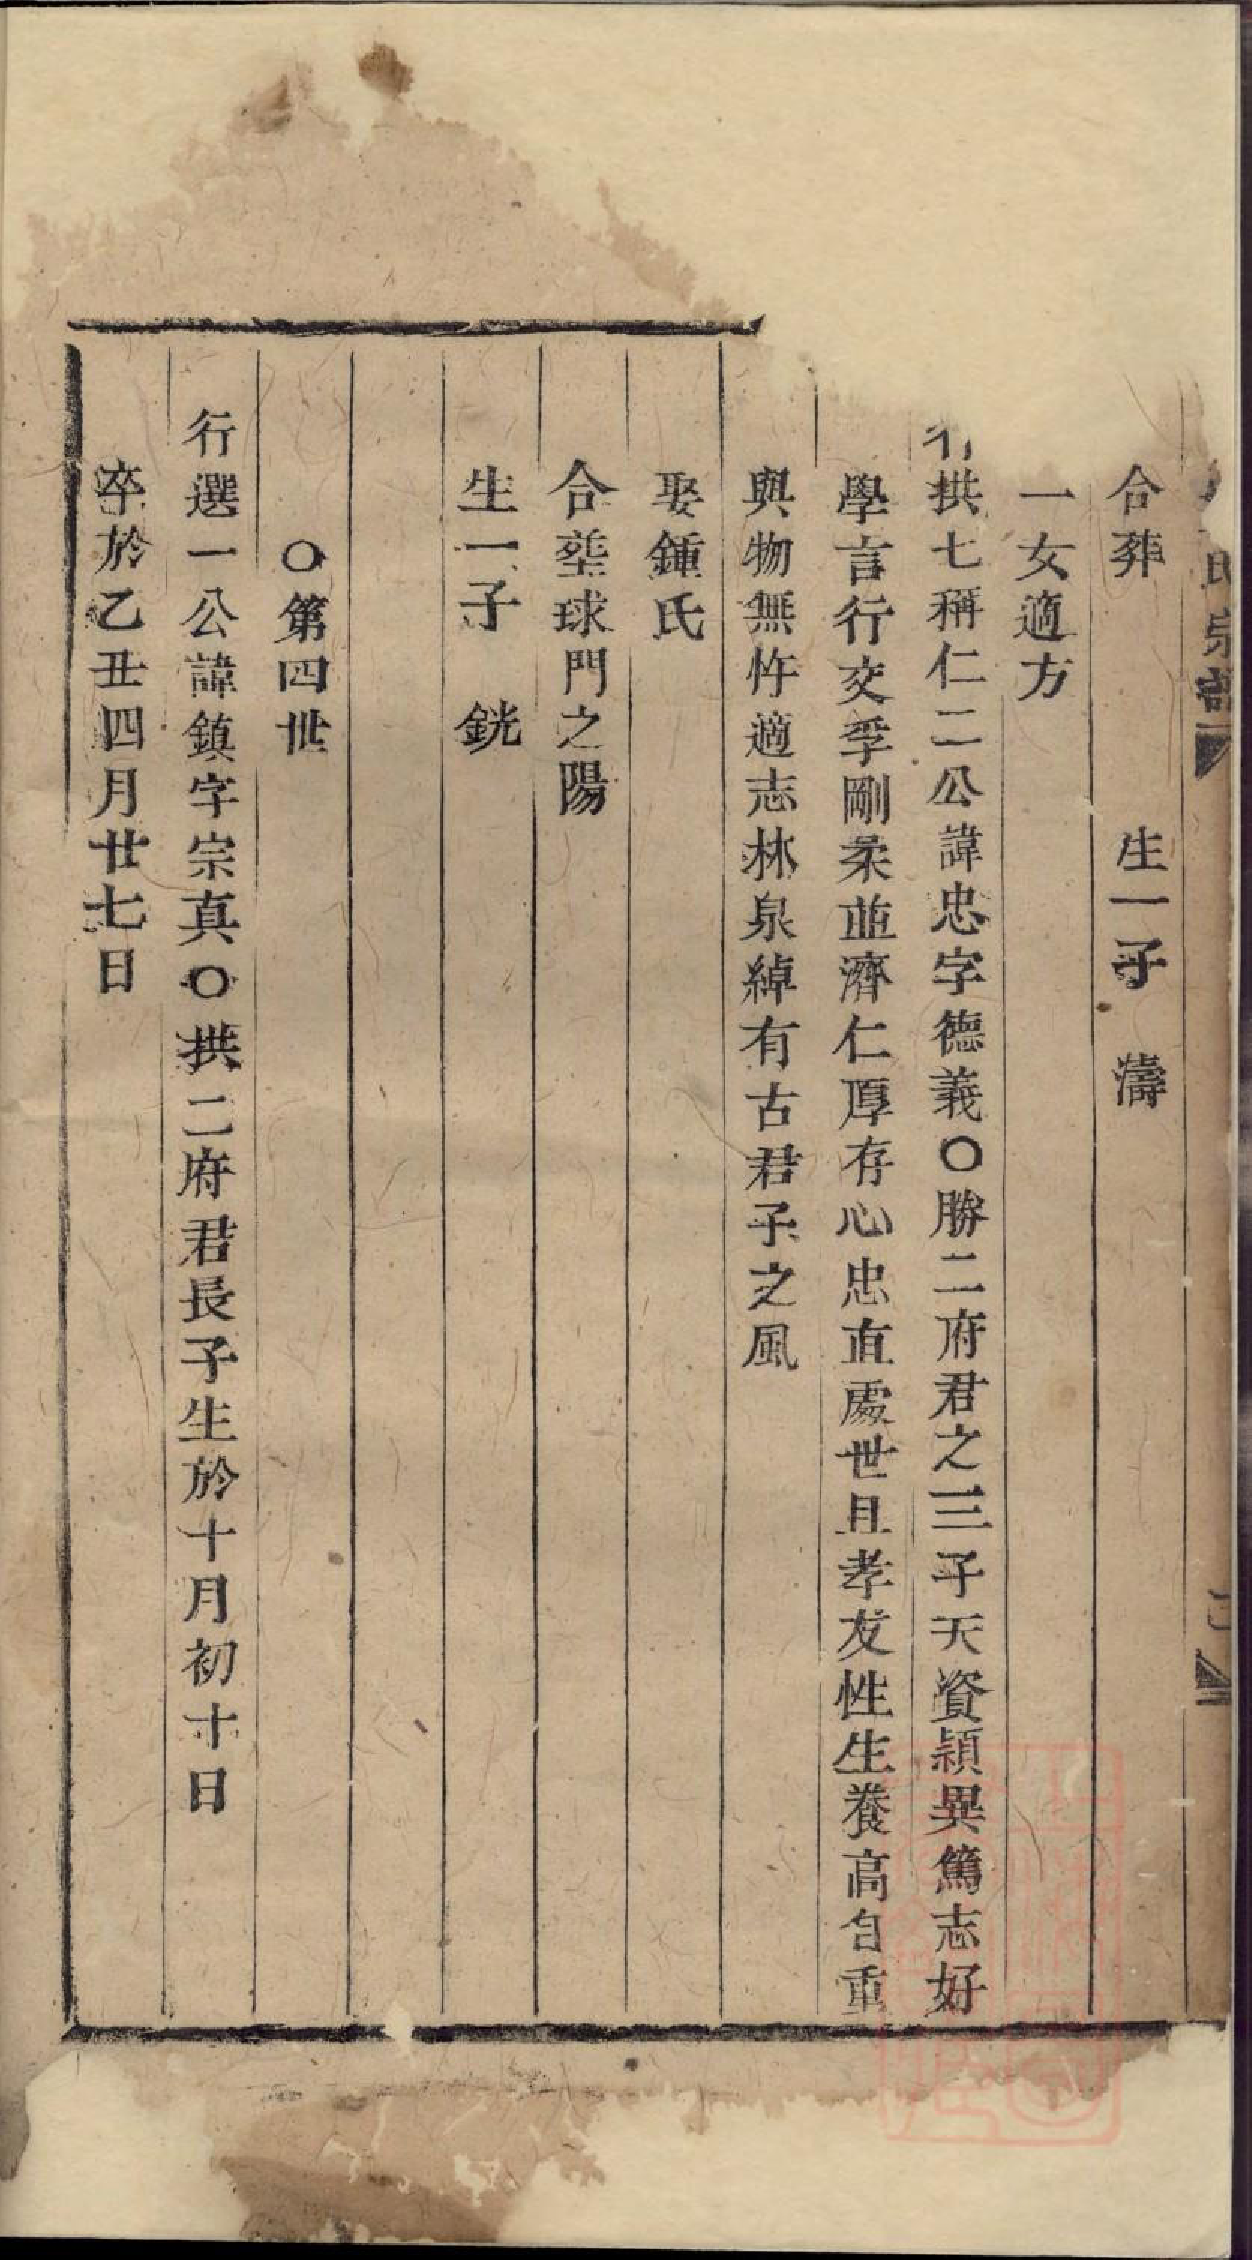 氏宗譜
合葬 生一子 濤
一女適方
行拱七稱仁二公諱忠字德義〇勝二府君之三子天資穎異篤志好
學言行交孚剛柔並濟仁厚存心忠直處世且孝友性生養高自重
與物無忤適志林泉綽有古君子之風
娶鍾氏
合塟球門之陽
生一子 銧
〇第四世
行選一公諱鎮字宗真〇拱二府君長子生於十月初十日
卒於乙丑四月廿七日